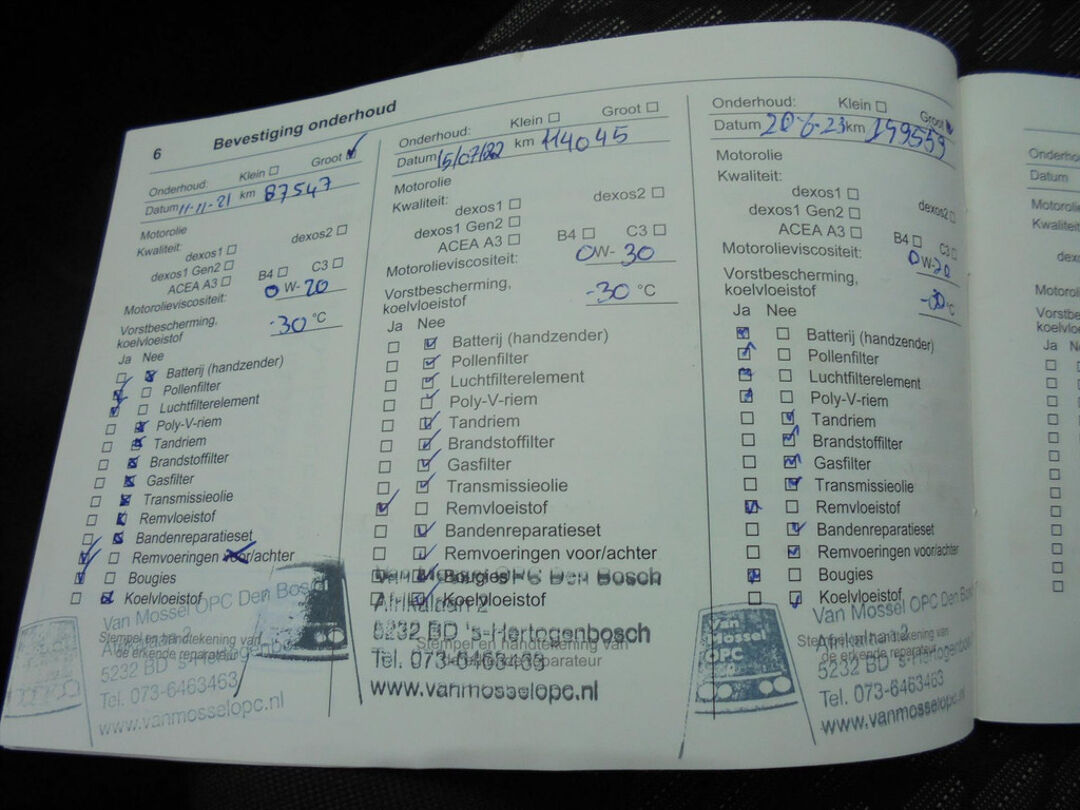 6 Bevestiging onderhoud
Onderhoud: Klein Groot
Datum 11-11-21 km 87547
Motorolie
Kwaliteit:
dexos1 dexos2
dexos1 Gen2
ACEA A3 B4 C3
Motorolieviscositeit: 0 W- 20
Vorstbescherming,
koelvloeistof -30 °C
Ja Nee
Batterij (handzender)
Pollenfilter
Luchtfilterelement
Poly-V-riem
Tandriem
Brandstoffilter
Gasfilter
Transmissieolie
Remvloeistof
Bandenreparatieset
Remvoeringen voor/achter
Bougies
Koelvloeistof
Van Mossel OPC Den Bosch
Stempel en handtekening van
de erkende reparateur
5232 BD 's-Hertogenbosch
Tel. 073-6463463
www.vanmosselopc.nl
Onderhoud: Klein Groot
Datum 15/07/22 km 114045
Motorolie
Kwaliteit:
dexos1 dexos2
dexos1 Gen2
ACEA A3 B4 C3
Motorolieviscositeit: 0W- 30
Vorstbescherming,
koelvloeistof -30 °C
Ja Nee
Batterij (handzender)
Pollenfilter
Luchtfilterelement
Poly-V-riem
Tandriem
Brandstoffilter
Gasfilter
Transmissieolie
Remvloeistof
Bandenreparatieset
Remvoeringen voor/achter
Bougies
Van Mossel OPC Den Bosch
Koelvloeistof
5232 BD 's-Hertogenbosch
Stempel en handtekening van
Tel. 073-6463463
reparateur
www.vanmosselopc.nl
Onderhoud: Klein Groot
Datum 20-6-23 km 149559
Motorolie
Kwaliteit:
dexos1 dexos2
dexos1 Gen2
ACEA A3 B4 C3
Motorolieviscositeit: 0 W-20
Vorstbescherming,
koelvloeistof -30 °C
Ja Nee
Batterij (handzender)
Pollenfilter
Luchtfilterelement
Poly-V-riem
Tandriem
Brandstoffilter
Gasfilter
Transmissieolie
Remvloeistof
Bandenreparatieset
Remvoeringen voor/achter
Bougies
Koelvloeistof
Van
Mossel
OPC
Van Mossel OPC Den
Stempel en handtekening van
de erkende reparateur
5232 BD 's-Hertogenbosch
Tel. 073-6463463
www.vanmosselopc.n
Onderho
Datum
Motorolie
Kwaliteit
dexo
Motorol
Vorstbe
koelvlo
Ja